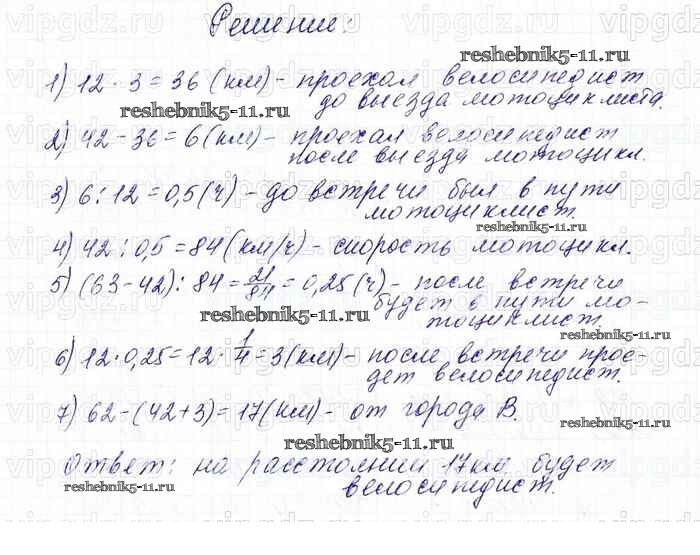 Решение:
reshebnik5-11.ru
1) 12 · 3 = 36 (км) - проехал велосипедист
до выезда мотоциклиста.
reshebnik5-11.ru
2) 42 - 36 = 6 (км) - проехал велосипедист
после выезда мотоцикл.
3) 6 : 12 = 0,5 (ч) - до встречи был в пути
мотоциклист.
reshebnik5-11.ru
4) 42 : 0,5 = 84 (км/ч) - скорость мотоцикл.
5) (63 - 42) : 84 = 21/84 = 0,25 (ч) - после встречи
будет в пути мо-
reshebnik5-11.ru
тоциклист.
reshebnik5-11.ru
6) 12 · 0,25 = 12 · 1/4 = 3 (км) - после встречи прое-
дет велосипедист.
7) 62 - (42 + 3) = 17 (км) - от города В.
reshebnik5-11.ru
reshebnik5-11.ru
Ответ: на расстоянии 17 км будет
reshebnik5-11.ru
велосипедист.
reshebnik5-11.ru